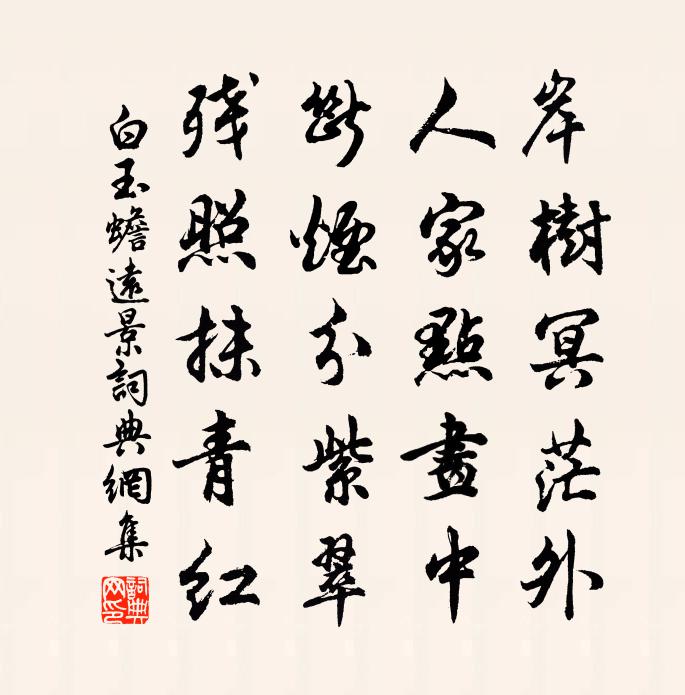 岸樹冥茫外
人家點畫中
斷煙分紫翠
殘照抹青紅
白玉蟾遠景詞典網集
詞典網印